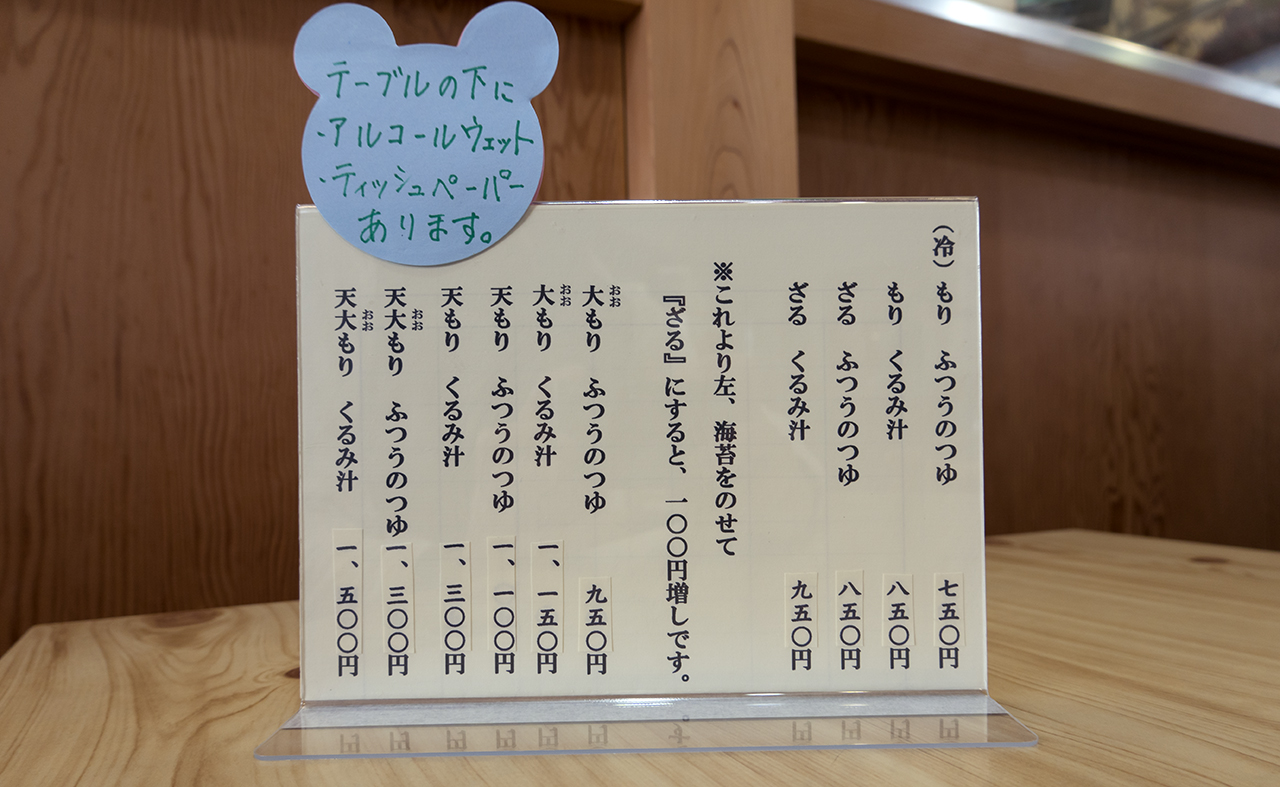 テーブルの下に
・アルコールウェット
・ティッシュペーパー
あります。
（冷）もり　ふつうのつゆ　七五〇円
もり　くるみ汁　八五〇円
ざる　ふつうのつゆ　八五〇円
ざる　くるみ汁　九五〇円
※これより左、海苔をのせて
『ざる』にすると、一〇〇円増しです。
おお
大もり　ふつうのつゆ　九五〇円
おお
大もり　くるみ汁　一、一五〇円
天もり　ふつうのつゆ　一、一〇〇円
天もり　くるみ汁　一、三〇〇円
おお
天大もり　ふつうのつゆ　一、三〇〇円
おお
天大もり　くるみ汁　一、五〇〇円